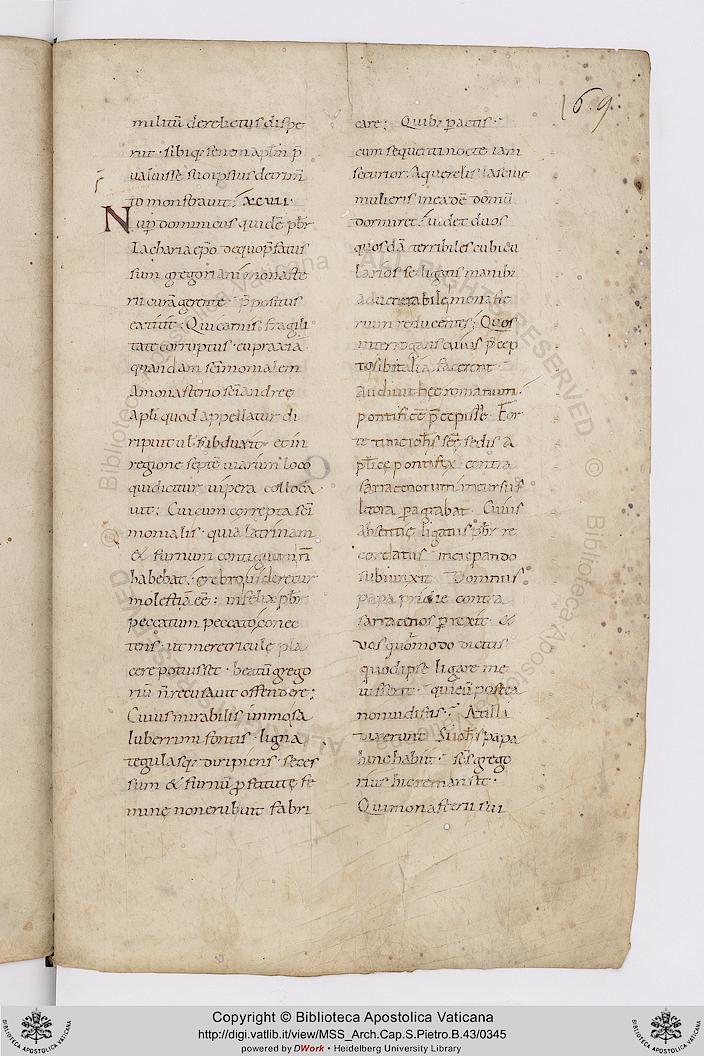 169
militū derelictus dispe
riit · sibiq; senon aplm̄ p̄
ualuisse suo ipsius detrim̄
to monstrauit; xcvii·
Nup̄ dominicus quidē pb̄r
sum gregoriani monaste
rii curā gerente · p̄positus
extitit; Qui carnis fragili
tate corruptus · eupraxiā
quandam scīmonialem
A monasterio scī andreę
apl̄i quod appellatur di
ripuit uł subduxit · et in
regione septē uiarum loco
qui dicitur uipera colloca
uit; Cui cum correpta scī
monialis · quia latrinam
& furnum contiguum n̄
habebat · crebro uideretur
molestiā eē; infelix pb̄r
peccatum peccato conec
tens · ut meretriculę pla
cere potuisset · beatū grego
riū n̄ recusauit offendere;
Cuius mirabilis immo sa
luberrimi fontis · ligna
tegulasq; diripiens · seces
sum & furnū p̄stitutę fe
minę non erubuit fabri
care; Quib; pactis ·
cum sequenti nocte iam
securior · a querelis lasciuę
mulieris in eadē domū
dormiret · uidet duos
quosdā terribiles cubicu
larios se ligatis manib;
ad uenerabile monaste
rium reducentes; Quos
interrogans cuius p̄cep
to sibi talia facerent
audiuit hęc romanum
pontificē p̄cepisse · For
te tunc ioh̄s scę̄ sedis a
pl̄icę pontifex contra
sarracenorum incursus
litora p̄agrabat · Cuius
absentię ligatus pb̄r re
cordatus · increpando
subiunxit · Domnus
papa pridie contra
sarracenos p̄rexit · &
uos quōmodo dicitis
quod ipse ligare me
iusserit · quē ū postea
non uidistis; At illi
dixerunt · Si ioh̄s papa
hinc habiit · sc̄s grego
rius hic remansit ·
Qui monasterii sui
Copyright © Biblioteca Apostolica Vaticana
http://digi.vatlib.it/view/MSS_Arch.Cap.S.Pietro.B.43/0345
powered by DWork • Heidelberg University Library